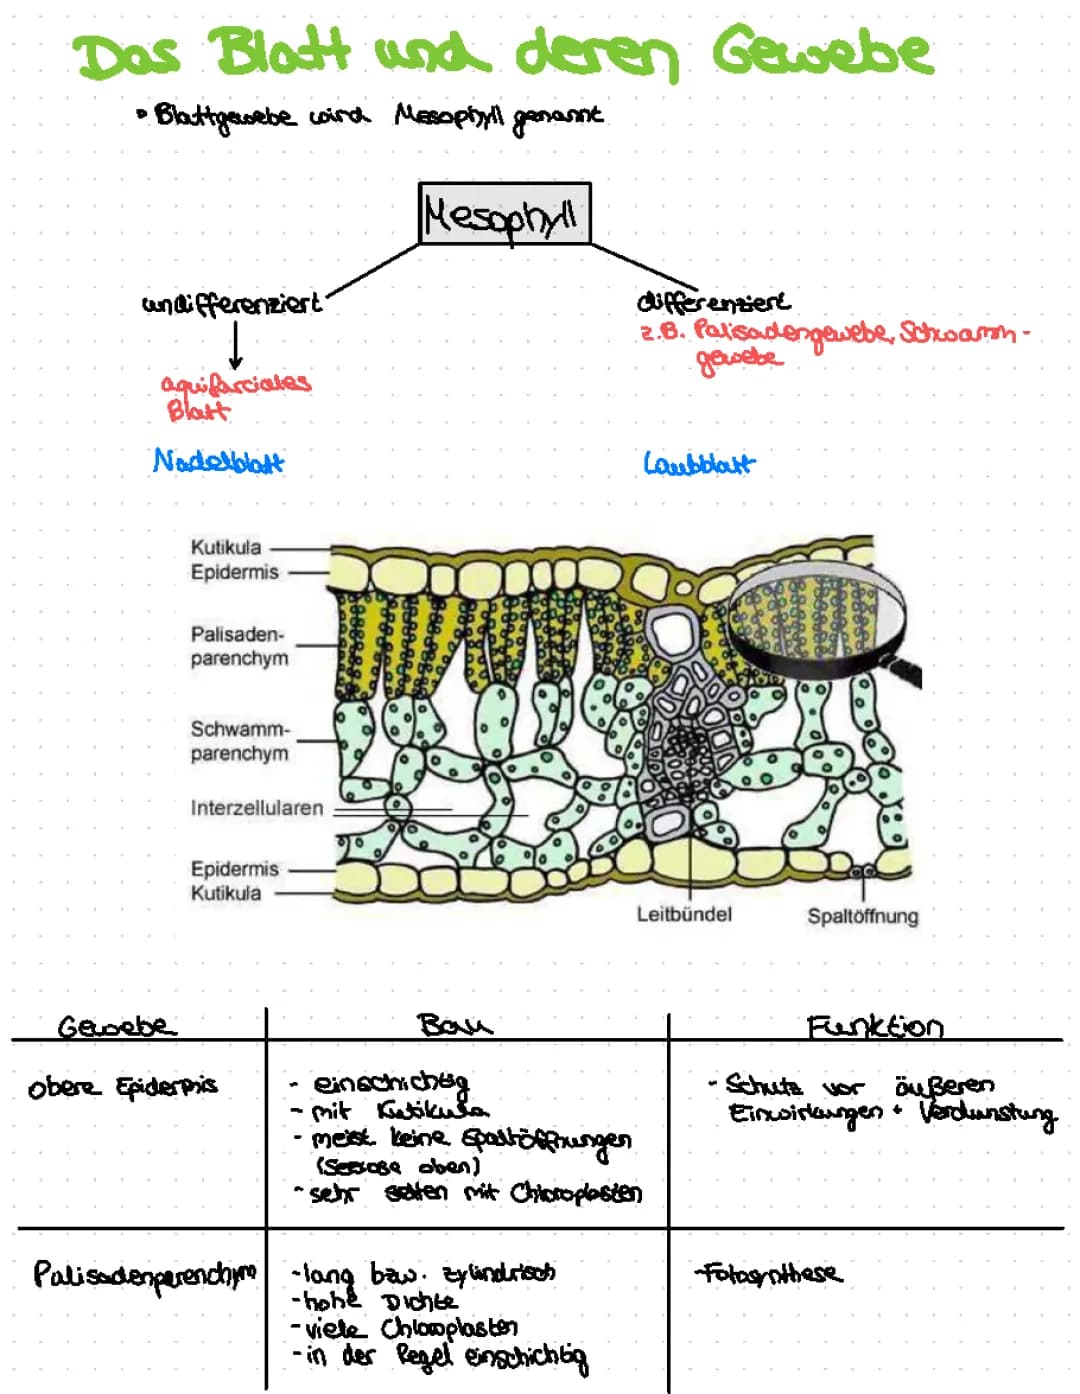 Das Blatt und deren Gewebe
• Blattgewebe wird Mesophyll genannt
Mesophyll
undifferenziert
differenziert
z.B. Palisadengewebe, Schwamm-
gewebe
aquifarciales
Blatt
Nadelblatt
Laubblatt
Kutikula
Epidermis
Palisaden-
parenchym
Schwamm-
parenchym
Interzellularen
Epidermis
Kutikula
Leitbündel
Spaltöffnung
Gewebe
Bau
Funktion
obere Epidermis
- einschichtig
- mit Kutikula
- meist keine Spaltöffnungen
(Seerose oben)
- sehr selten mit Chloroplasten
- Schutz vor äußeren
Einwirkungen + Verdunstung
Palisadenperenchym
- lang bzw. zylindrisch
- hohe Dichte
- viele Chloroplasten
- in der Regel einschichtig
- Fotosynthese